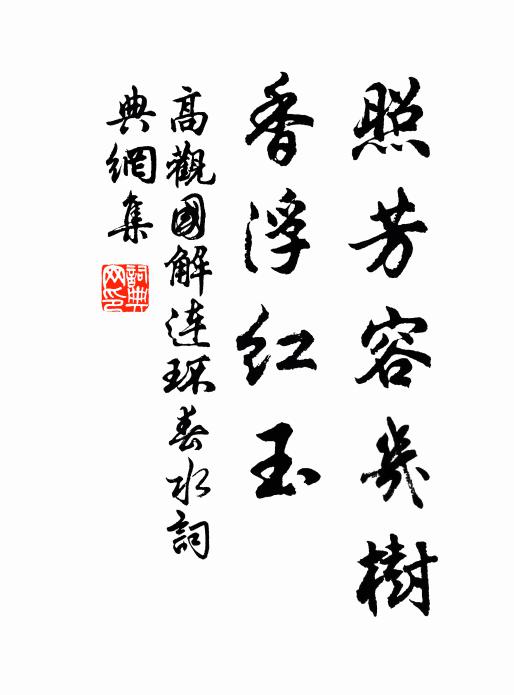 照芳容幾樹
香浮红玉
高觀國解连环春水詞
典網集
詞典网印